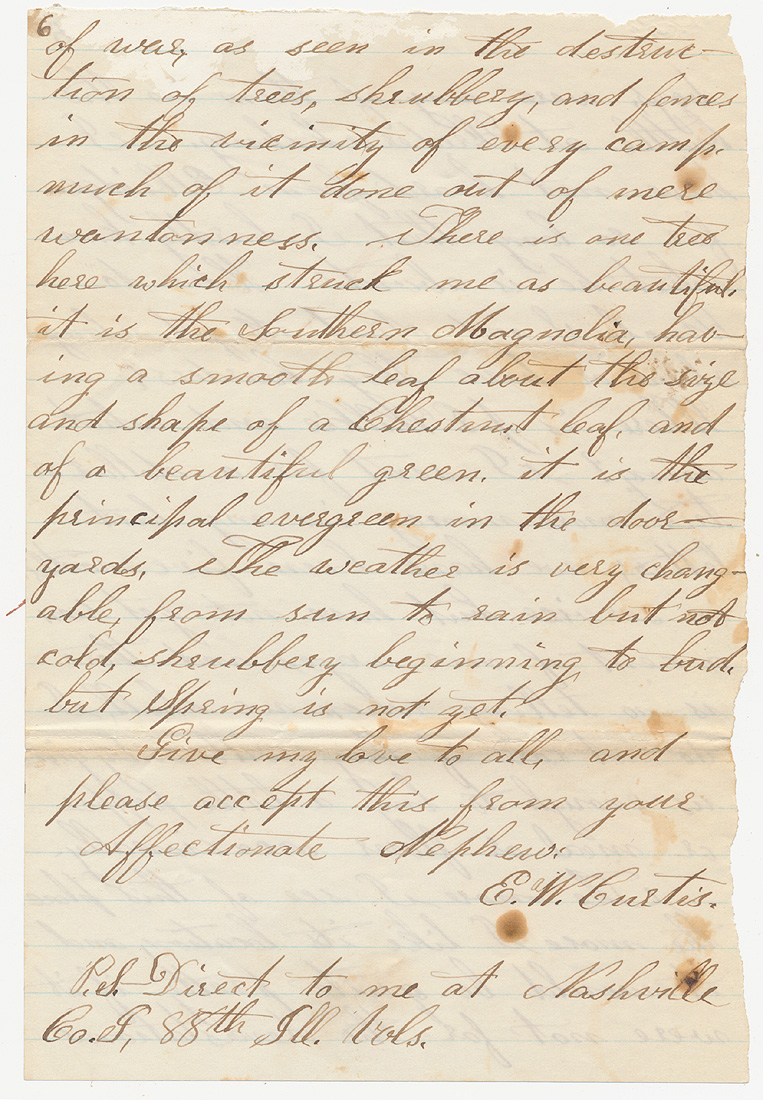 6
of war, as seen in the destruc-
tion of trees, shrubbery, and fences
in the vicinity of every camp.
much of it done out of mere
wantonness. There is one tree
here which struck me as beautiful.
it is the Southern Magnolia, hav-
ing a smooth leaf about the size
and shape of a Chestnut leaf, and
of a beautiful green. it is the
principal evergreen in the door-
yards. The weather is very chang-
able, from sun to rain but not
cold, shrubbery beginning to bud,
but Spring is not yet.
Give my love to all, and
please accept this from your
Affectionate Nephew:
E. W. Curtis.
P.S. Direct to me at Nashville
Co. I, 88th Ill. Vols.